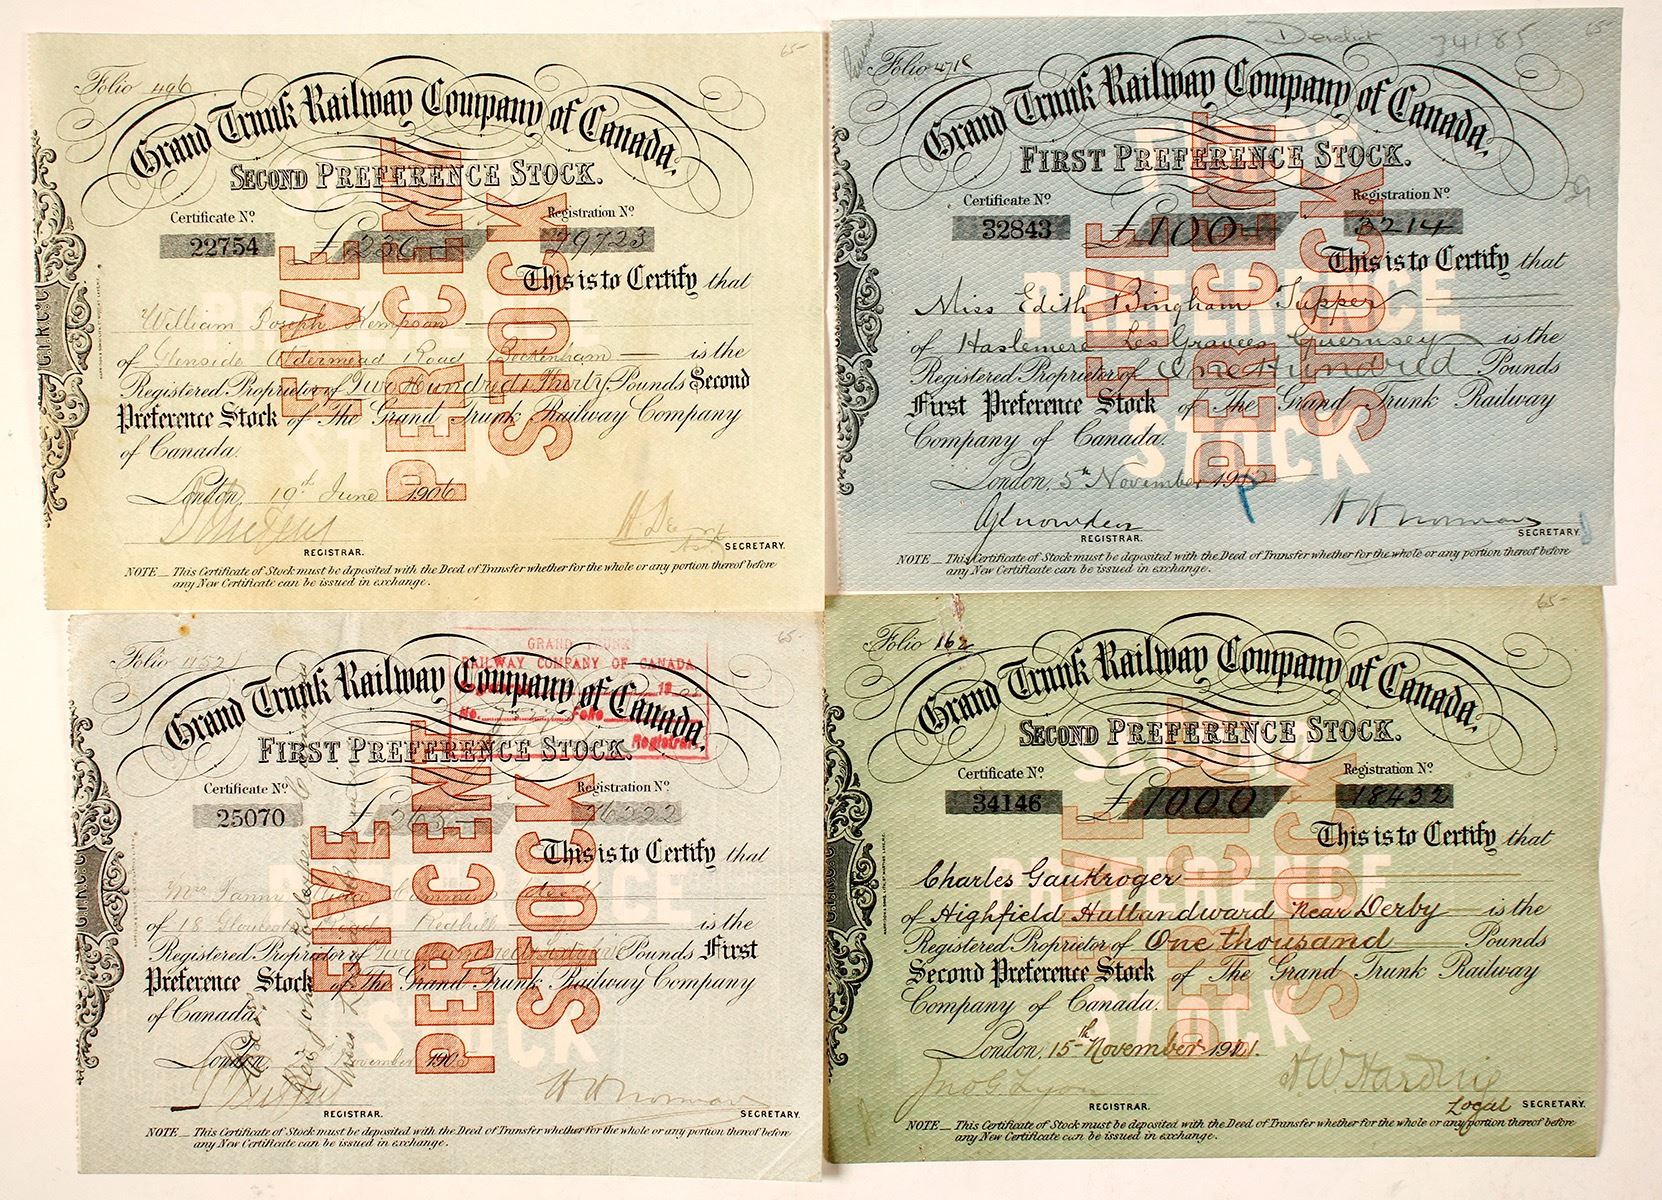 65-
Folio 496
Grand Trunk Railway Company of Canada.
SECOND PREFERENCE STOCK.
Certificate No
Registration No
22754
£ 230
39723
FIVE PER CENT STOCK
This is to Certify that
William Joseph
of Glenside Aldermead Road Beckenham — is the
Registered Proprietor of Two Hundred & Thirty Pounds Second
Preference Stock of The Grand Trunk Railway Company
of Canada.
London, 19th June 1906
REGISTRAR.
SECRETARY.
NOTE _ This Certificate of Stock must be deposited with the Deed of Transfer whether for the whole or any portion thereof before
any New Certificate can be issued in exchange.
Derelict 34185
65-
Folio
Grand Trunk Railway Company of Canada.
FIRST PREFERENCE STOCK.
Certificate No
Registration No
32843
£ 100
3214
FIVE PER CENT STOCK
FIRST
PREFERENCE
STOCK
This is to Certify that
Miss Edith Bingham Tupper
of Haslemere Les Gravees Guernsey — is the
Registered Proprietor of One Hundred Pounds
First Preference Stock of The Grand Trunk Railway
Company of Canada.
London, 5th November 1912
H H Norman
REGISTRAR.
SECRETARY.
NOTE _ This Certificate of Stock must be deposited with the Deed of Transfer whether for the whole or any portion thereof before
any New Certificate can be issued in exchange.
65-
Folio
GRAND TRUNK
RAILWAY COMPANY OF CANADA
No. Folio
Registrar
Grand Trunk Railway Company of Canada.
FIRST PREFERENCE STOCK.
Certificate No
Registration No
25070
£
FIVE PER CENT STOCK
PREFERENCE
STOCK
This is to Certify that
of 18 Road Redhill — is the
Registered Proprietor of Two Pounds First
Preference Stock of The Grand Trunk Railway Company
of Canada.
London, November
H H Norman
REGISTRAR.
SECRETARY.
NOTE _ This Certificate of Stock must be deposited with the Deed of Transfer whether for the whole or any portion thereof before
any New Certificate can be issued in exchange.
65-
Folio 162
Grand Trunk Railway Company of Canada.
SECOND PREFERENCE STOCK.
Certificate No
Registration No
34146
£ 1000
18432
FIVE PER CENT STOCK
SECOND
PREFERENCE
STOCK
This is to Certify that
Charles Gaukroger
of Highfield Hulland ward Near Derby — is the
Registered Proprietor of One thousand Pounds
Second Preference Stock of The Grand Trunk Railway
Company of Canada.
London, 15th November 1911.
Jno G Lyon
H W Harding
REGISTRAR.
Local SECRETARY.
NOTE _ This Certificate of Stock must be deposited with the Deed of Transfer whether for the whole or any portion thereof before
any New Certificate can be issued in exchange.